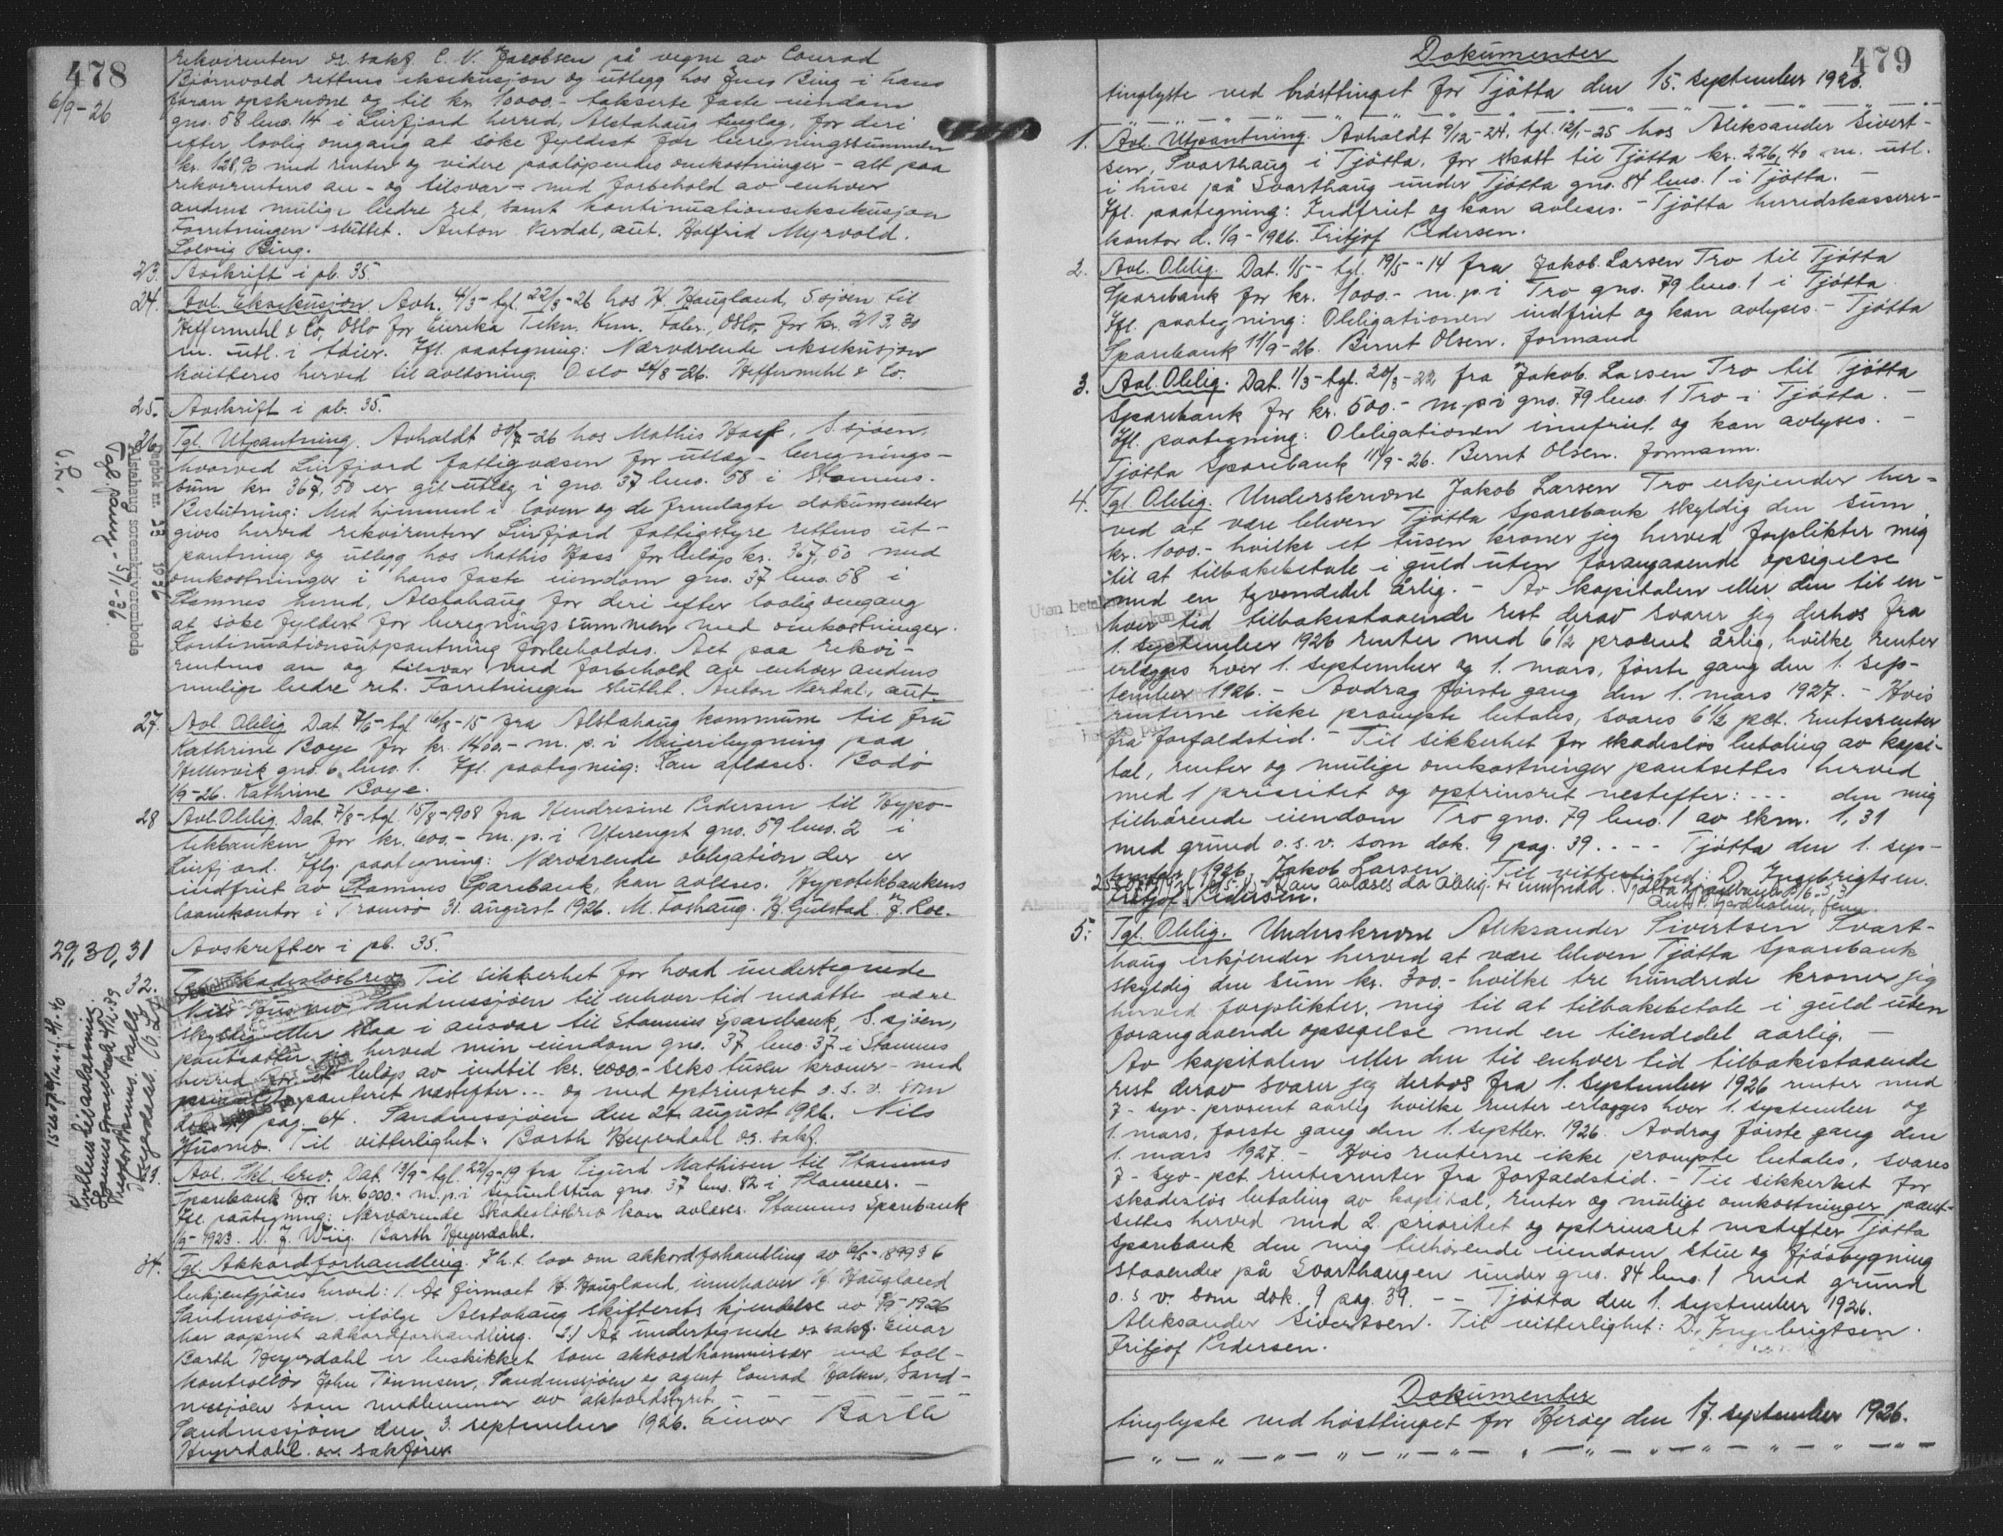 478
6/9-26
rekvirenten os. sakf. C. V. Jacobsen på vegne av Conrad
Bjørnvold rettens eksekusjon og utlegg hos Jens Bing i hans
foran opskrevne og til kr. 10000.- takserte faste eiendom
gno. 58 bno. 14 i Leirfjord herred, Alstahaug tinglag, for deri
efter lovlig omgang at søke fyldest for beregningssummen
kr. 128,90 med renter og videre paaløpende omkostninger - alt paa
rekvirentens an- og tilsvar - med forbehold av enhver
andens mulige bedre ret, samt kontinuationseksekusjon
Forretningen sluttet. Anton Nerdal, aut. Halfrid Myrvold.
Solveig Bing.
23. Avskrift i pb. 35.
24. Avl. Eksekusjon. Avh. 4/3- tgl. 22/3-26 hos H. Haugland, S.sjøen til
Heffermehl & Co, Oslo for Eureka Tekn. Kem. Fabr., Oslo, for kr. 213,30
m. utl. i tøier. Ifl. paategning: Nærværende eksekusjon
kvitteres herved til avlesning. Oslo 24/8-26. Heffermehl & Co.
25. Avskrift i pb. 35.
26. Tgl. Utpantning. Avholdt 30/7-26 hos Mathis Hass, S.sjøen,
hvorved Leirfjord fattigvæsen for utlæg - beregnings-
sum kr. 367,50 er git utlæg i gno. 37 bno. 58 i Stamnes.
Beslutning: Med hjemmel i loven og de fremlagte dokumenter
gives herved rekvirenten Leirfjord fattigstyre rettens ut-
pantning og utlegg hos Mathis Hass for beløp kr. 367,50 med
omkostninger i hans faste eiendom gno. 37 bno. 58 i
Stamnes herred, Alstahaug for deri efter lovlig omgang
at søke fyldest for beregningssummen med omkostninger.
Kontinuationsutpantning forbeholdes. Alt paa rekvi-
rentens an og tilsvar med forbehold av enhver andens
mulige bedre ret. Forretningen sluttet. Anton Nerdal, aut.
Dagbok nr. 33 1936
Alstahaug sorenskriverembede
27. Avl. Oblig. Dat. 7/6- tgl. 16/8-15 fra Alstahaug kommune til fru
Kathrine Boye for kr. 1400.- m. p. i Meieribygning paa
Hellesvik gno. 6 bno. 1. Ifl. paategning: Kan aflæses. Bodø
1/9-26. Kathrine Boye.
28 Avl. Oblig. Dat. 7/8- tgl. 15/8-1908 fra Hendresine Pedersen til Hypo-
tekbanken for kr. 600.- m. p. i Ytrenget gno. 59 bno. 2 i
Leirfjord. Iflg. paategning: Nærværende obligation der er
indfriet av Stamnes Sparebank, kan avleses. Hypotekbankens
laanekontor i Tromsø 31. august 1926. M. Foshaug. H. Gulstad. J. Roe.
29, 30, 31 Avskrifter i pb. 35.
32. Tgl. Skadesløsbrev. Til sikkerhet for hvad undertegnede
Nils Husmo Sandnessjøen til enhver tid maatte være
skyldig eller staa i ansvar til Stamnes Sparebank, S.sjøen,
pantsætter jeg herved min eiendom gno. 37 bno. 37 i Stamnes
herred for et beløp av indtil kr. 6000.- seks tusen kroner - med
prioritets panteret næstefter... og med optrinsret o. s. v. som
dok. 49 pag. 64. Sandnessjøen den 24 august 1926. Nils
Husmo. Til vitterlighet: Barth Heyerdahl os. sakf.
33. Avl. Skl. brev. Dat. 13/9- tgl. 22/9-19 fra Sigurd Mathisen til Stamnes
Sparebank for kr. 6000.- m. p. i gno. 37 bno. 82 i Stamnes.
Ifl. paategning: Nærværende skadesløsbrev kan avleses. Stamnes Sparebank
1/9-1923. J. Wiig. Barth Heyerdahl.
34. Tgl. Akkordforhandling. I h.t. lov om akkordforhandling av 6/5-1899 § 6
bekjentgjøres herved: 1. At firmaet H. Haugland, innehaver H. Haugland
Sandnessjøen ifølge Alstahaug skifteretts kjendelse av 3/9-1926
har aapnet akkordforhandling. 2.) At undertegnede os. sakf. Einar
Barth Heyerdahl er beskikket som akkordkommissær med toll-
kontrollør John Tønnesen, Sandnessjøen og agent Conrad Holm, Sand-
nessjøen som medlemmer av akkordstyret.
Sandnessjøen den 3. september 1926. Einar Barth
Heyerdahl. os. sakfører.
479
Dokumenter
tinglyste ved høsttinget for Tjøtta den 15. september 1926.
1. Avl. Utpantning. Avholdt 9/12-24, tgl. 12/1-25 hos Aleksander Sivert-
sen, Svarthaug i Tjøtta, for skatt til Tjøtta kr. 226,40 m. utl.
i huse på Svarthaug under Tjøtta gno. 84 bno. 1 i Tjøtta. -
Ifl. paategning: Indfriet og kan avleses. - Tjøtta herredskasserer-
kontor d. 1/9-1926. Fritjof Pedersen.
2. Avl. Oblig. Dat. 1/5- tgl. 19/5-14 fra Jakob Larsen Tro til Tjøtta
Sparebank for kr. 1000.- m. p. i Tro gno. 79 bno. 1 i Tjøtta
Ifl. paategning: Obligationen indfriet og kan avlyses. - Tjøtta
Sparebank 11/9-26. Bernt Olsen. formand
3. Avl. Oblig. Dat. 1/3- tgl. 20/3-22 fra Jakob Larsen Tro til Tjøtta
Sparebank for kr. 500.- m. p. i gno. 79 bno. 1 Tro i Tjøtta. -
Ifl. paategning: Obligationen innfriet og kan avlyses. -
Tjøtta Sparebank 11/9-26. Bernt Olsen. formann.
4. Tgl. Oblig. Underskrevne Jakob Larsen Tro erkjender her-
ved at være bleven Tjøtta Sparebank skyldig den sum
kr. 1000.- hvilke et tusen kroner jeg herved forplikter mig
til at tilbakebetale i guld uten forangaaende opsigelse
med en tyvendedel årlig. - Av kapitalen eller den til en-
hver tid tilbakestaaende rest derav svarer jeg derhos fra
1. september 1926 renter med 6 1/2 procent årlig, hvilke renter
erlægges hver 1. september og 1. mars, første gang den 1. sep-
tember 1926. - Avdrag første gang den 1. mars 1927. - Hvis
renterne ikke prompte betales, svares 6 1/2 pct. rentesrenter
fra forfaldstid. - Til sikkerhet for skadesløs betaling av kapi-
tal, renter og mulige omkostninger pantsettes herved
med 1 prioritet og optrinsret nestefter: ... den mig
tilhørende eiendom Tro gno. 79 bno. 1 av skm. 1,31
med grund o. s. v. som dok. 9 pag. 39. ... Tjøtta den 1. sep-
tember 1926. Jakob Larsen. Til vitterlighet: D. Ingebrigtsen.
Fritjof Pedersen.
5. Tgl. Oblig. Underskrevne Aleksander Sivertsen Svart-
haug erkjender herved at være bleven Tjøtta Sparebank
skyldig den sum kr. 300.- hvilke tre hundrede kroner jeg
herved forplikter mig til at tilbakebetale i guld uten
forangaaende opsigelse med en tiendedel aarlig. -
Av kapitalen eller den til enhver tid tilbakestaaende
rest derav svarer jeg derhos fra 1. september 1926 renter med
7 - syv - prosent aarlig hvilke renter erlægges hver 1. september og
1. mars, første gang den 1. septbr. 1926. Avdrag første gang den
1. mars 1927. - Hvis renterne ikke prompte betales, svares
7 - syv - pct. rentesrenter fra forfaldstid. - Til sikkerhet for
skadesløs betaling av kapital, renter og mulige omkostninger pant-
settes herved med 2. prioritet og optrinsret nestefter Tjøtta
Sparebank den mig tilhørende eiendom, stue og fjøsbygning
staaende på Svarthaugen under gno. 84 bno. 1 med grund
o. s. v. som dok. 9 pag. 39. -- Tjøtta den 1. september 1926.
Aleksander Sivertsen. Til vitterlighet: D. Ingebrigtsen.
Fritjof Pedersen.
Dokumenter
tinglyste ved høsttinget for Herøy den 17. september 1926.